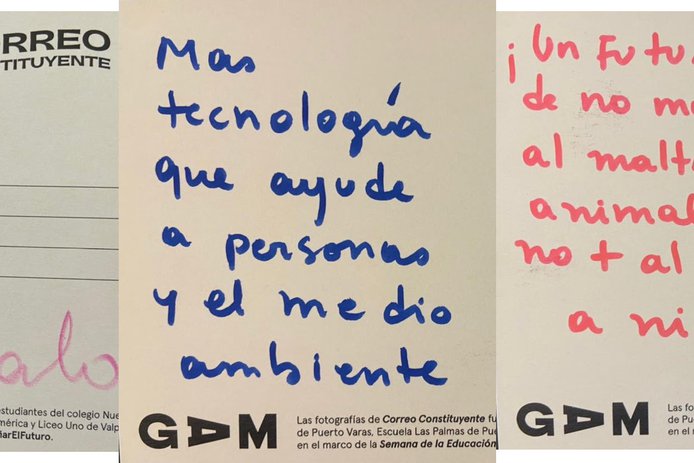 RREO
TITUYENTE
alo
estudiantes del colegio Nue
mérica y Liceo Uno de Valp
arElFuturo.
Mas
tecnología
que ayude
a personas
y el medio
ambiente
GAM
Las fotografías de Correo Constituyente fu
de Puerto Varas, Escuela Las Palmas de Pue
en el marco de la Semana de la Educación
¡Un Futu
de no m
al malt
animal
no + al
a ni
GAM
Las f
de Pu
en el m